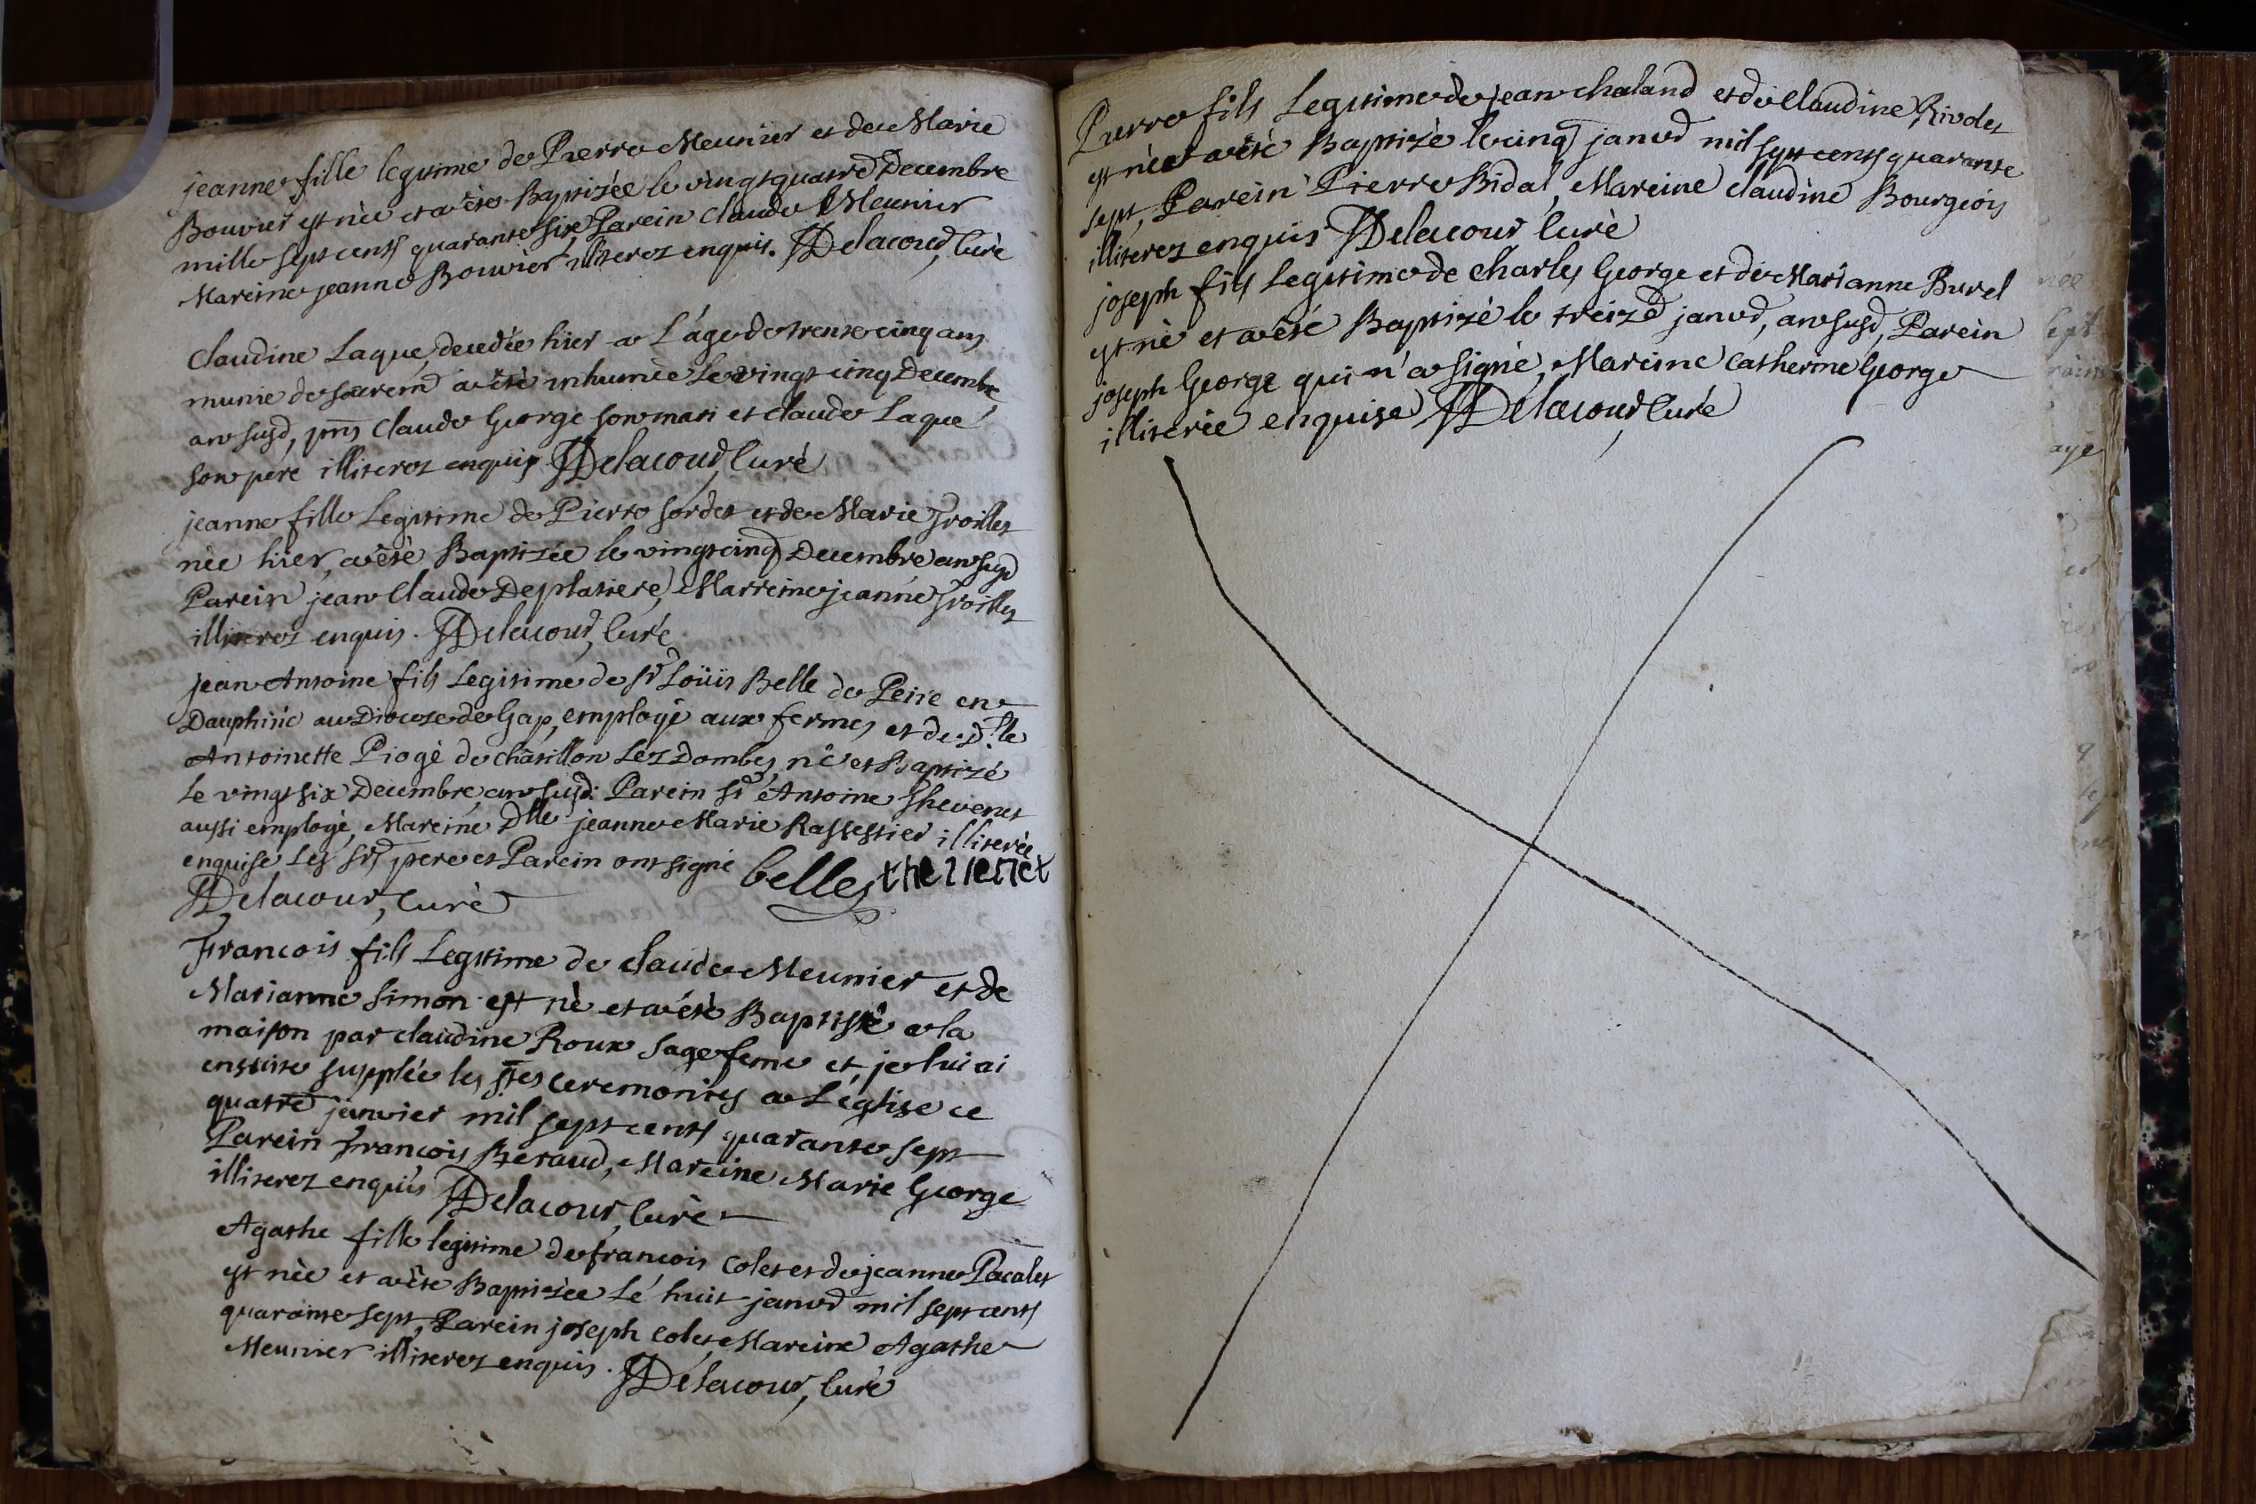 jeanne fille legitime de Pierre Meunier et de Marie
Bouvier est née et a étés Baptizée le vingt quatre Decembre
mille sept cents quarante six, Parein Claude Meunier
Mareine jeanne Bouvier illiterez enquis. JADelacour, Curé
Claudine Laque, decedée hier a L'áge de trente cinq ans
munie de sacremd a été inhumée Le vingt cinq Decembre
an susd, pnts Claude George son mari et Claude Laque
son pere illiterez enquis JADelacour, Curé
jeanne fille Legitime de Pierre Sordet et de Marie Froillet
née hier, a été Baptizée le vingt cinq Decembre an susd
Parein jean Claude Deplatiere, Marreine jeanne Froillet
illiterez enquis. JADelacour, Curé
jean Antoine fils Legitime de Sr Loüis Belle de Peire en
Dauphiné au Diocese de Gap, employé aux fermes et de Dlle
Antoinette Piogé de châtillon Lez Dombes, né et Baptizé
Le vingt six Decembre, an susd: Parein Sr Antoine Thevenet
aussi employé, Mareine Dlle jeanne Marie Rassestier illiterée
enquise Les Srs pere et Parein ont signé belle thevenet
JADelacour, Curé
Francois fils Legitime de claude Meunier et de
Marianne Simon est né et a été Baptisé a la
maison par claudine Roux sage feme et je lui ai
ensuite supplée les stes ceremonies a L'église ce
quatre janvier mil sept cents quarante sept
Parein François Beraud, Mareine Marie George
illiterez enquis JADelacour, Curé
Agathe fille legitime de francois Colet et de jeanne Pacalet
est née et a été Baptizée Lé huit janvd mil sept cents
quarante sept, Parein joseph Colet, Mareine Agathe
Meunier illiterez enquis. JADelacour, Curé
Pierre fils Legitime de jean chaland et de Claudine Rivolet
est né et a été Baptizé le cinq janvd mil sept cents quarante
sept, Parein Pierre Bidal, Mareine claudine Bourgeois
illiterez enquis JADelacour Curé
joseph fils Legitime de Charles George et de Marianne Burel
est né et a été Baptizé le treize janvd, an susd, Parein
joseph George qui n'a signé, Mareine Catherine George
illiterée enquise JADelacour, Curé